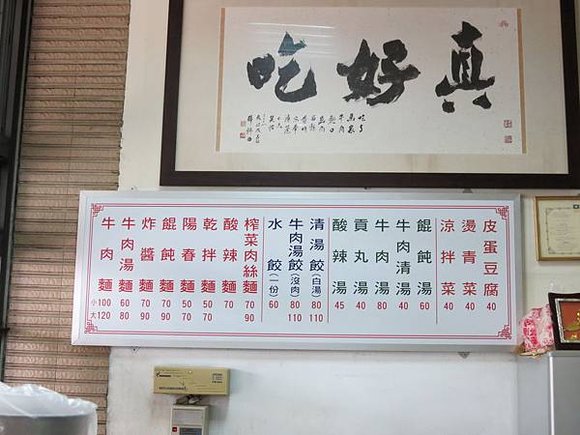 真好吃
牛肉麵 小100 大120
牛肉湯麵 60 80
炸醬麵 70 90
餛飩麵 70 90
陽春麵 50 70
乾拌麵 50 70
酸辣麵 70
榨菜肉絲麵 70 90
水餃(一份) 60
牛肉湯餃(沒肉) 80 110
清湯餃(白湯) 80 110
酸辣湯 45
貢丸湯 40
牛肉湯 80
牛肉清湯 40
餛飩湯 60
涼拌菜 40
燙青菜 40
皮蛋豆腐 40